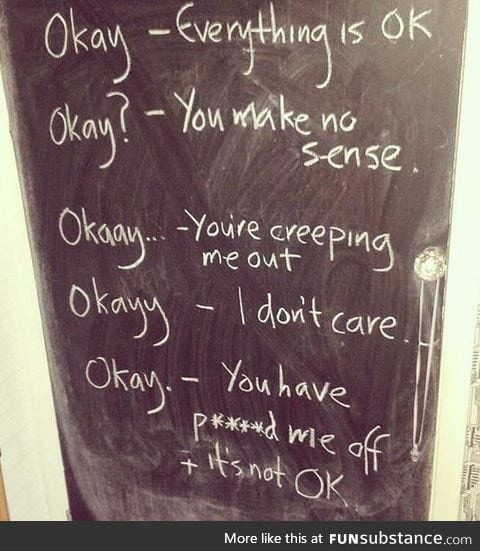 Okay - Everything is OK
Okay? - You make no
sense.
Okaay... - You're creeping
me out
Okayy - I don't care.
Okay. - You have
p****d me off
+ it's not OK
More like this at FUNsubstance.com